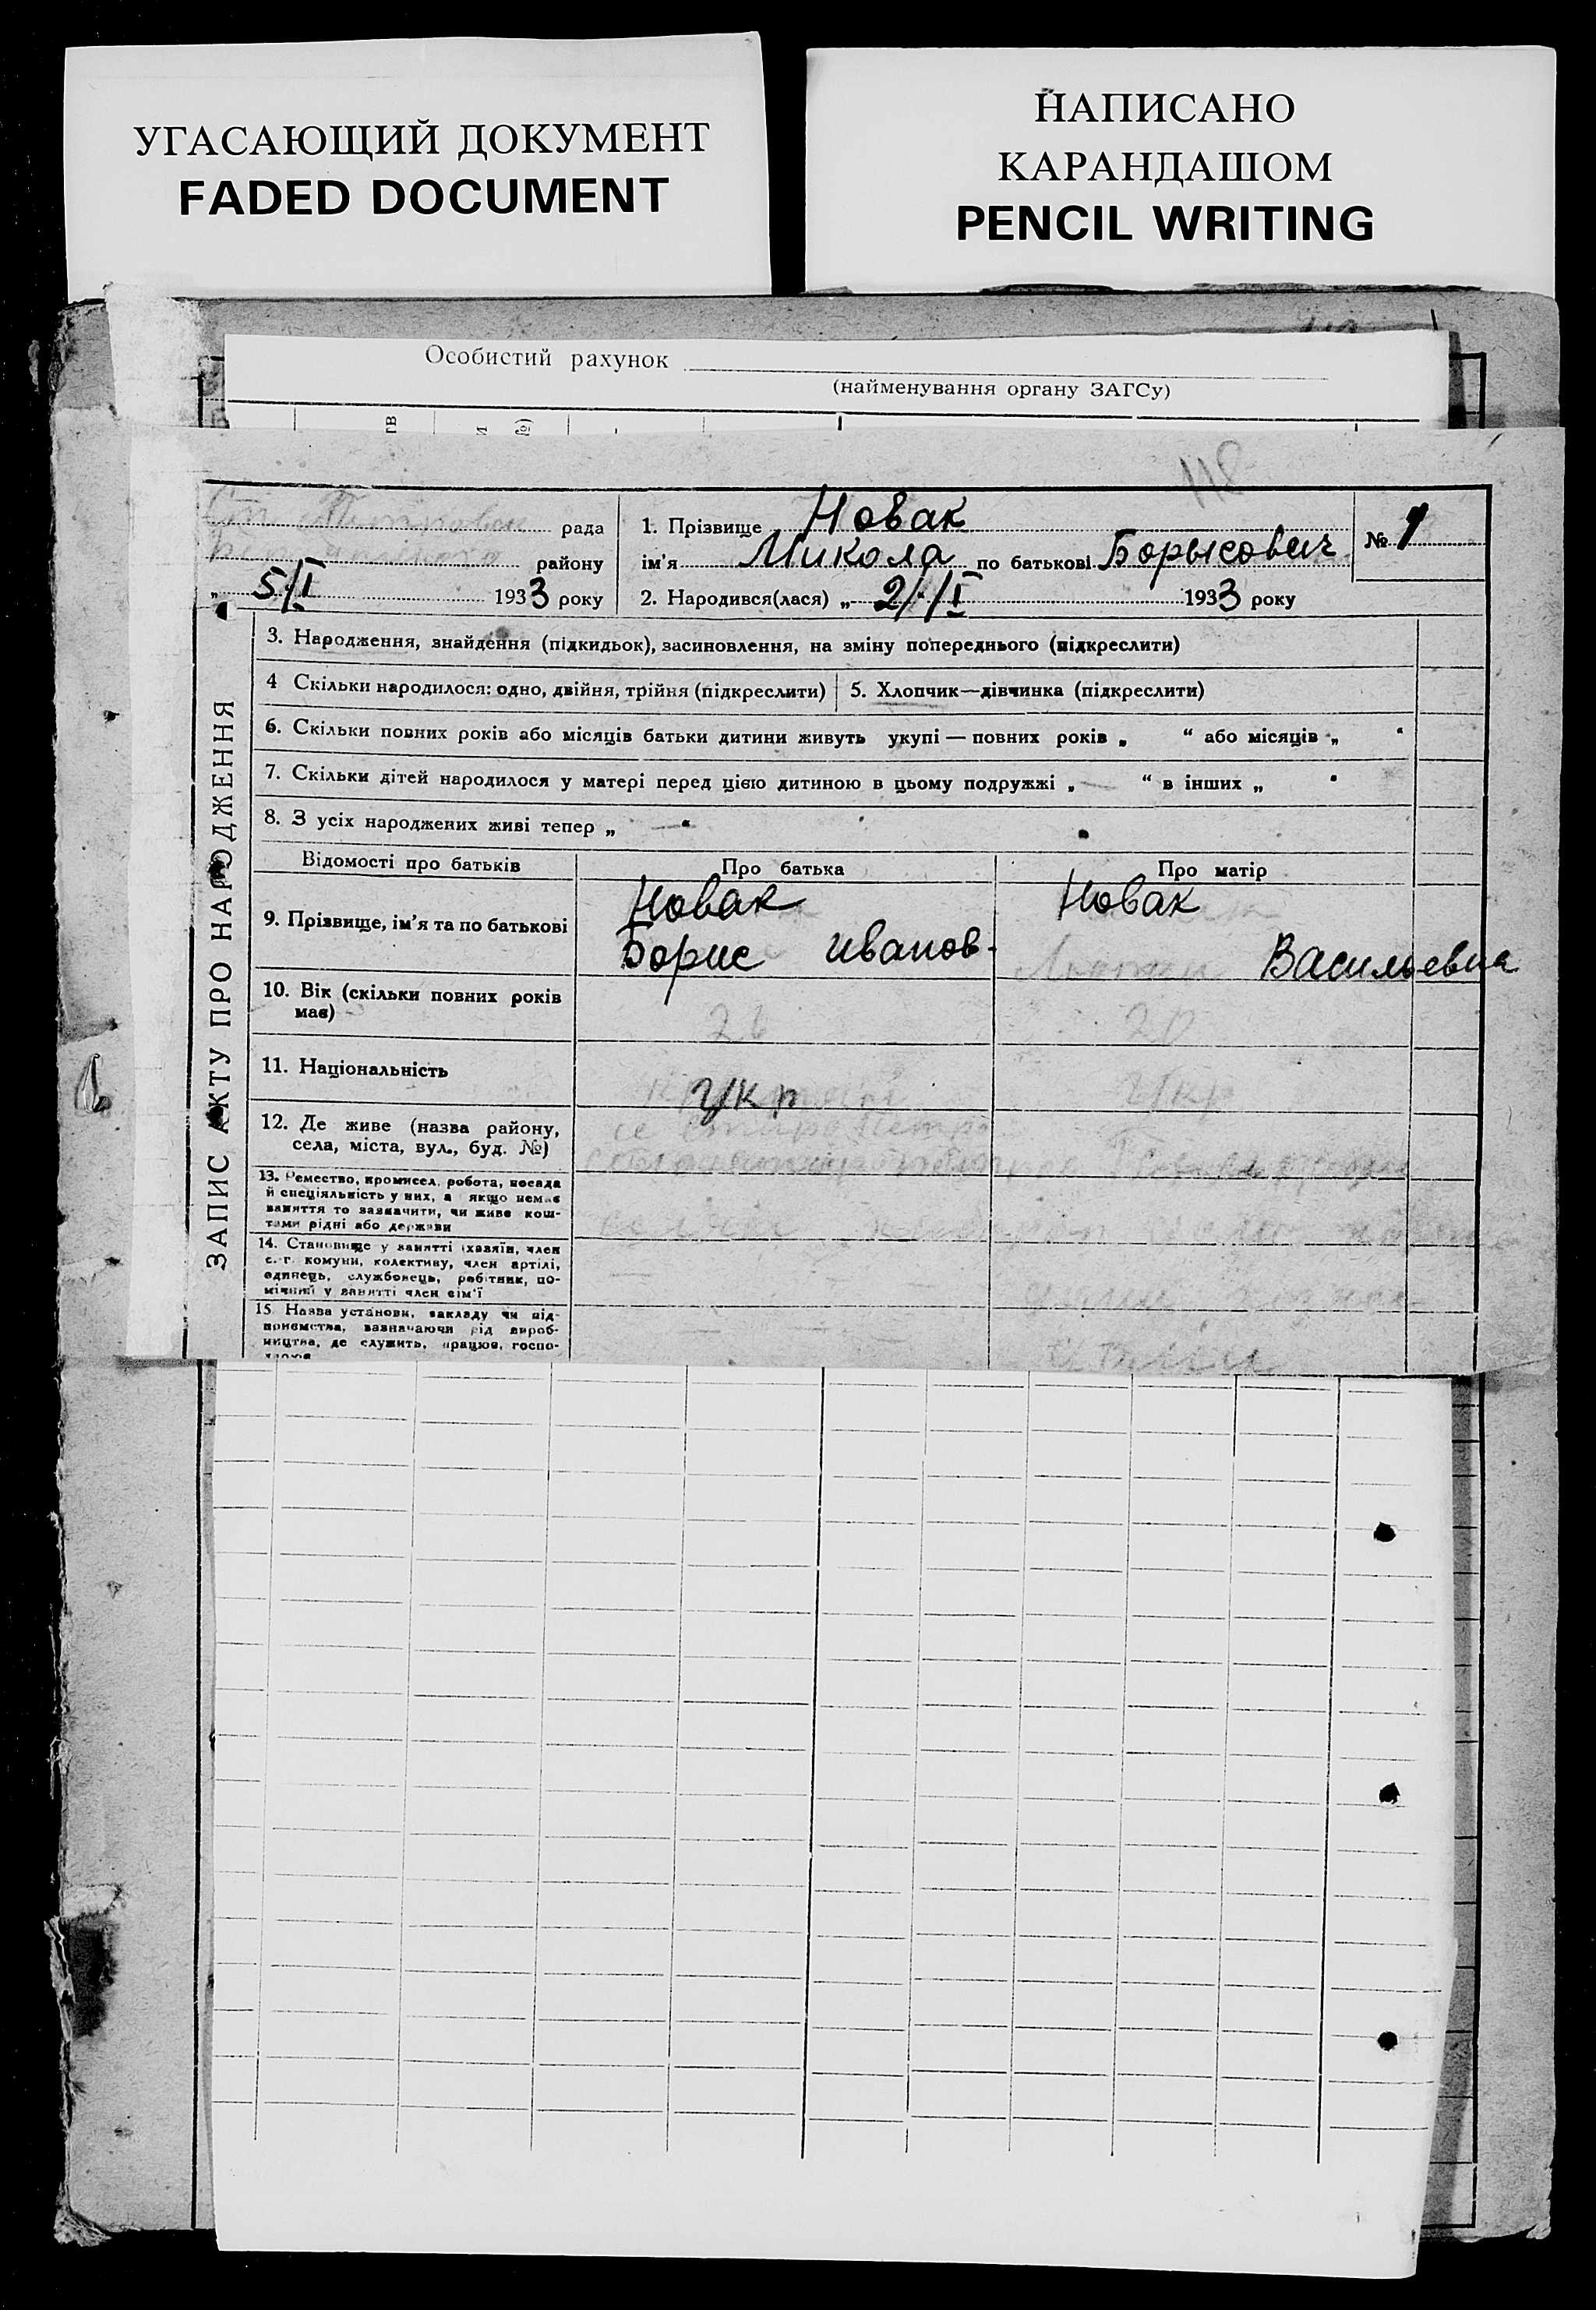 УГАСАЮЩИЙ ДОКУМЕНТ
FADED DOCUMENT
НАПИСАНО
КАРАНДАШОМ
PENCIL WRITING
Особистий рахунок
(найменування органу ЗАГСу)
рада
району
5/I 1933 року
1. Прізвище Новак
ім'я Микола по батькові Борысович
2. Народився(лася) „ 2/I 1933 року
№ 1
ЗАПИС АКТУ ПРО НАРОДЖЕННЯ
3. Народження, знайдення (підкидьок), засиновлення, на зміну попереднього (підкреслити)
4 Скільки народилося: одно, двійня, трійня (підкреслити) 5. Хлопчик—дівчинка (підкреслити)
6. Скільки повних років або місяців батьки дитини живуть укупі — повних років „ “ або місяців „ “
7. Скільки дітей народилося у матері перед цією дитиною в цьому подружжі „ — “ в інших „ “
8. З усіх народжених живі тепер „ — “
Відомості про батьків Про батька Про матір
9. Прізвище, ім'я та по батькові
Новак
Борис Иванов-
Новак
Васильевна
10. Вік (скільки повних років
має)
20
11. Національність
Укр
Укр
12. Де живе (назва району,
села, міста, вул., буд. №)
13. Ремество, промисел, робота, посада
й спеціяльність у них, а якщо немає
заняття то зазначити, чи живе кош-
тами рідні або держави
14. Становище у занятті (хазяїн, член
с.-г. комуни, колективу, член артілі,
одинець, службовець, робітник, по-
мічний у занятті член сім'ї
15. Назва установи, закладу чи під-
приємства, зазначаючи рід вироб-
ництва, де служить, працює, госпо-